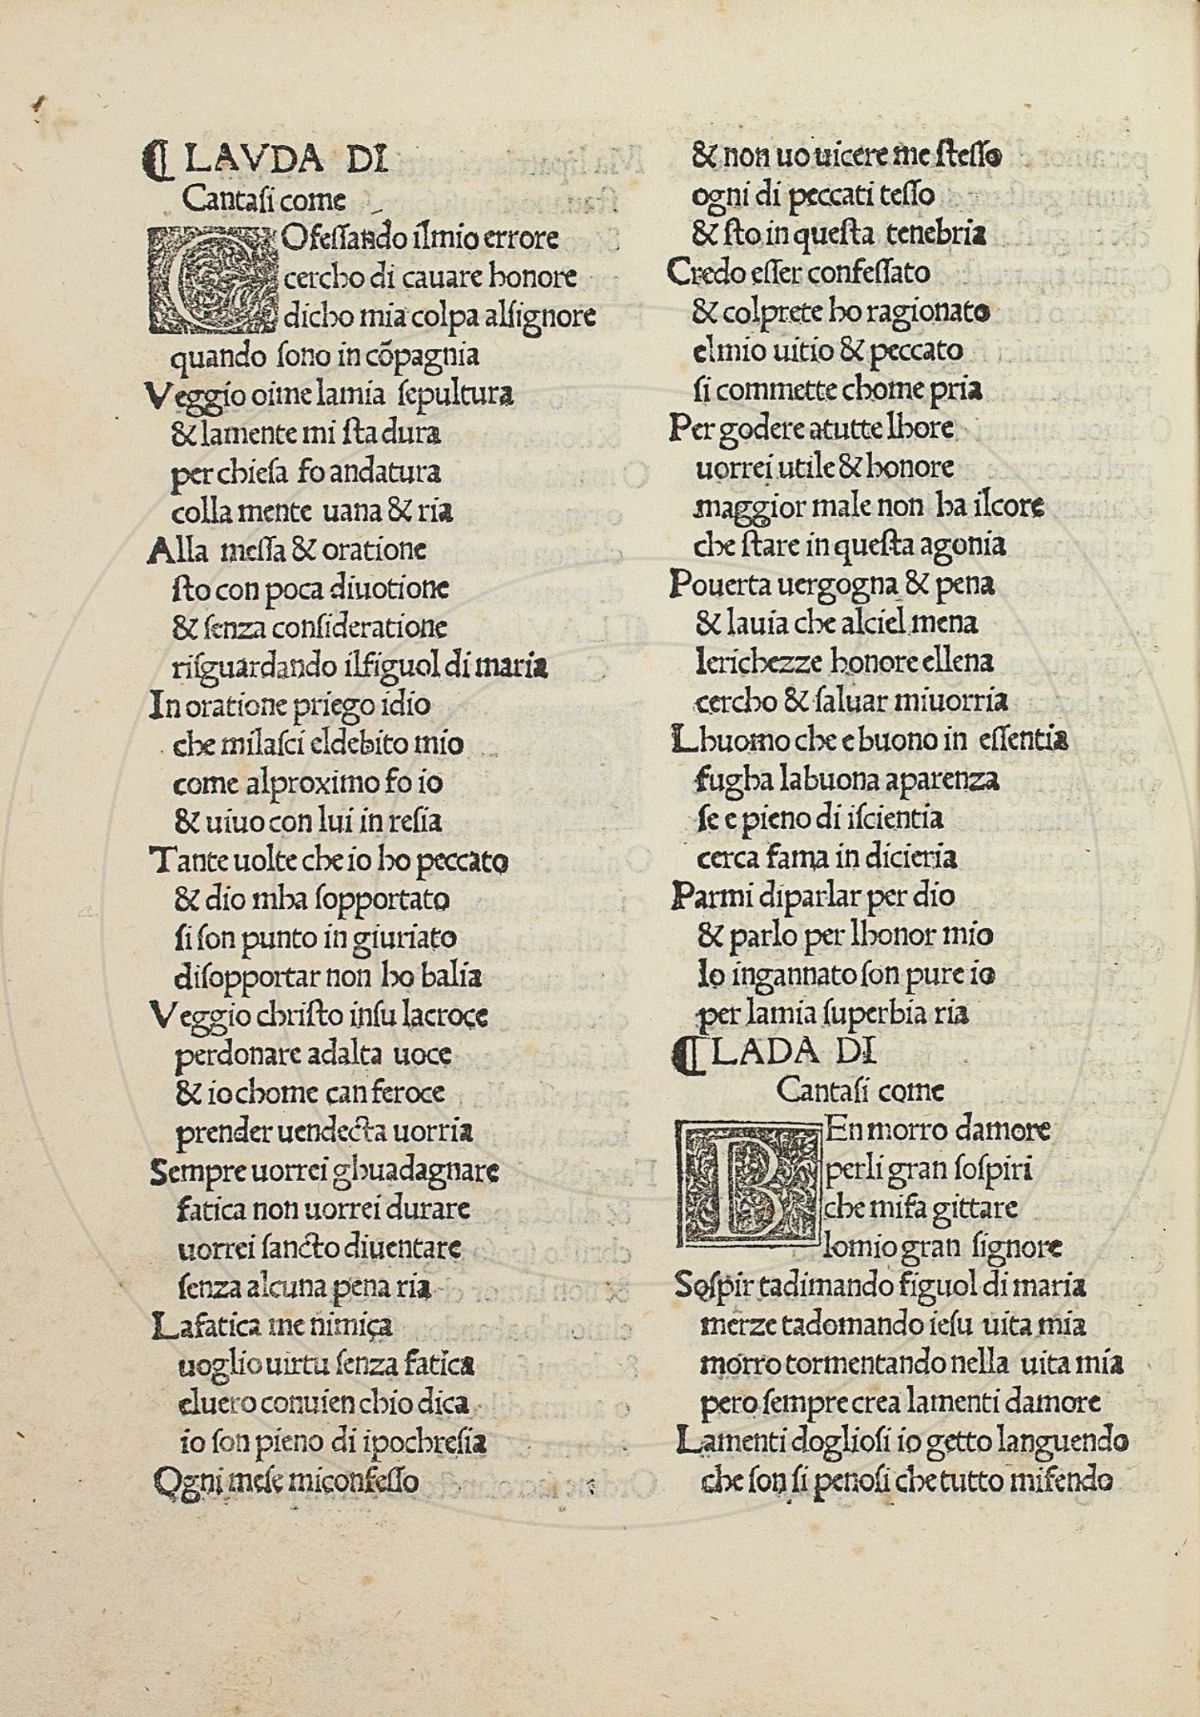 ¶ LAVDA DI
Cantasi come
COfessando ilmio errore
cercho di cauare honore
dicho mia colpa alsignore
quando sono in cõpagnia
Veggio oime lamia sepultura
& lamente mi sta dura
per chiesa fo andatura
colla mente uana & ria
Alla messa & oratione
sto con poca diuotione
& senza consideratione
risguardando ilfiguol di maria
In oratione priego idio
che milasci eldebito mio
come alproximo fo io
& uiuo con lui in resia
Tante uolte che io ho peccato
& dio mha sopportato
si son punto in giuriato
disopportar non ho balia
Veggio christo insu lacroce
perdonare adalta uoce
& io chome can feroce
prender uendecta uorria
Sempre uorrei ghuadagnare
fatica non uorrei durare
uorrei sancto diuentare
senza alcuna pena ria
Lafatica me nimiça
uoglio uirtu senza fatica
eluero conuien chio dica
io son pieno di ipochresia
Ogni mese miconfesso
& non uo uicere me stesso
ogni di peccati tesso
& sto in questa tenebria
Credo esser confessato
& colprete ho ragionato
elmio uitio & peccato
si commette chome pria
Per godere atutte lhore
uorrei utile & honore
maggior male non ha ilcore
che stare in questa agonia
Pouerta uergogna & pena
& lauia che alciel mena
lerichezze honore ellena
cercho & saluar miuorria
Lhuomo che e buono in essentia
fugha labuona aparenza
se e pieno di iscientia
cerca fama in dicieria
Parmi diparlar per dio
& parlo per lhonor mio
Io ingannato son pure io
per lamia superbia ria
¶ LADA DI
Cantasi come
BEn morro damore
perli gran sospiri
che mifa gittare
lomio gran signore
Sospir tadimando figuol di maria
merze tadomando iesu uita mia
morro tormentando nella uita mia
pero sempre crea lamenti damore
Lamenti dogliosi io getto languendo
che son si penosi che tutto mifendo